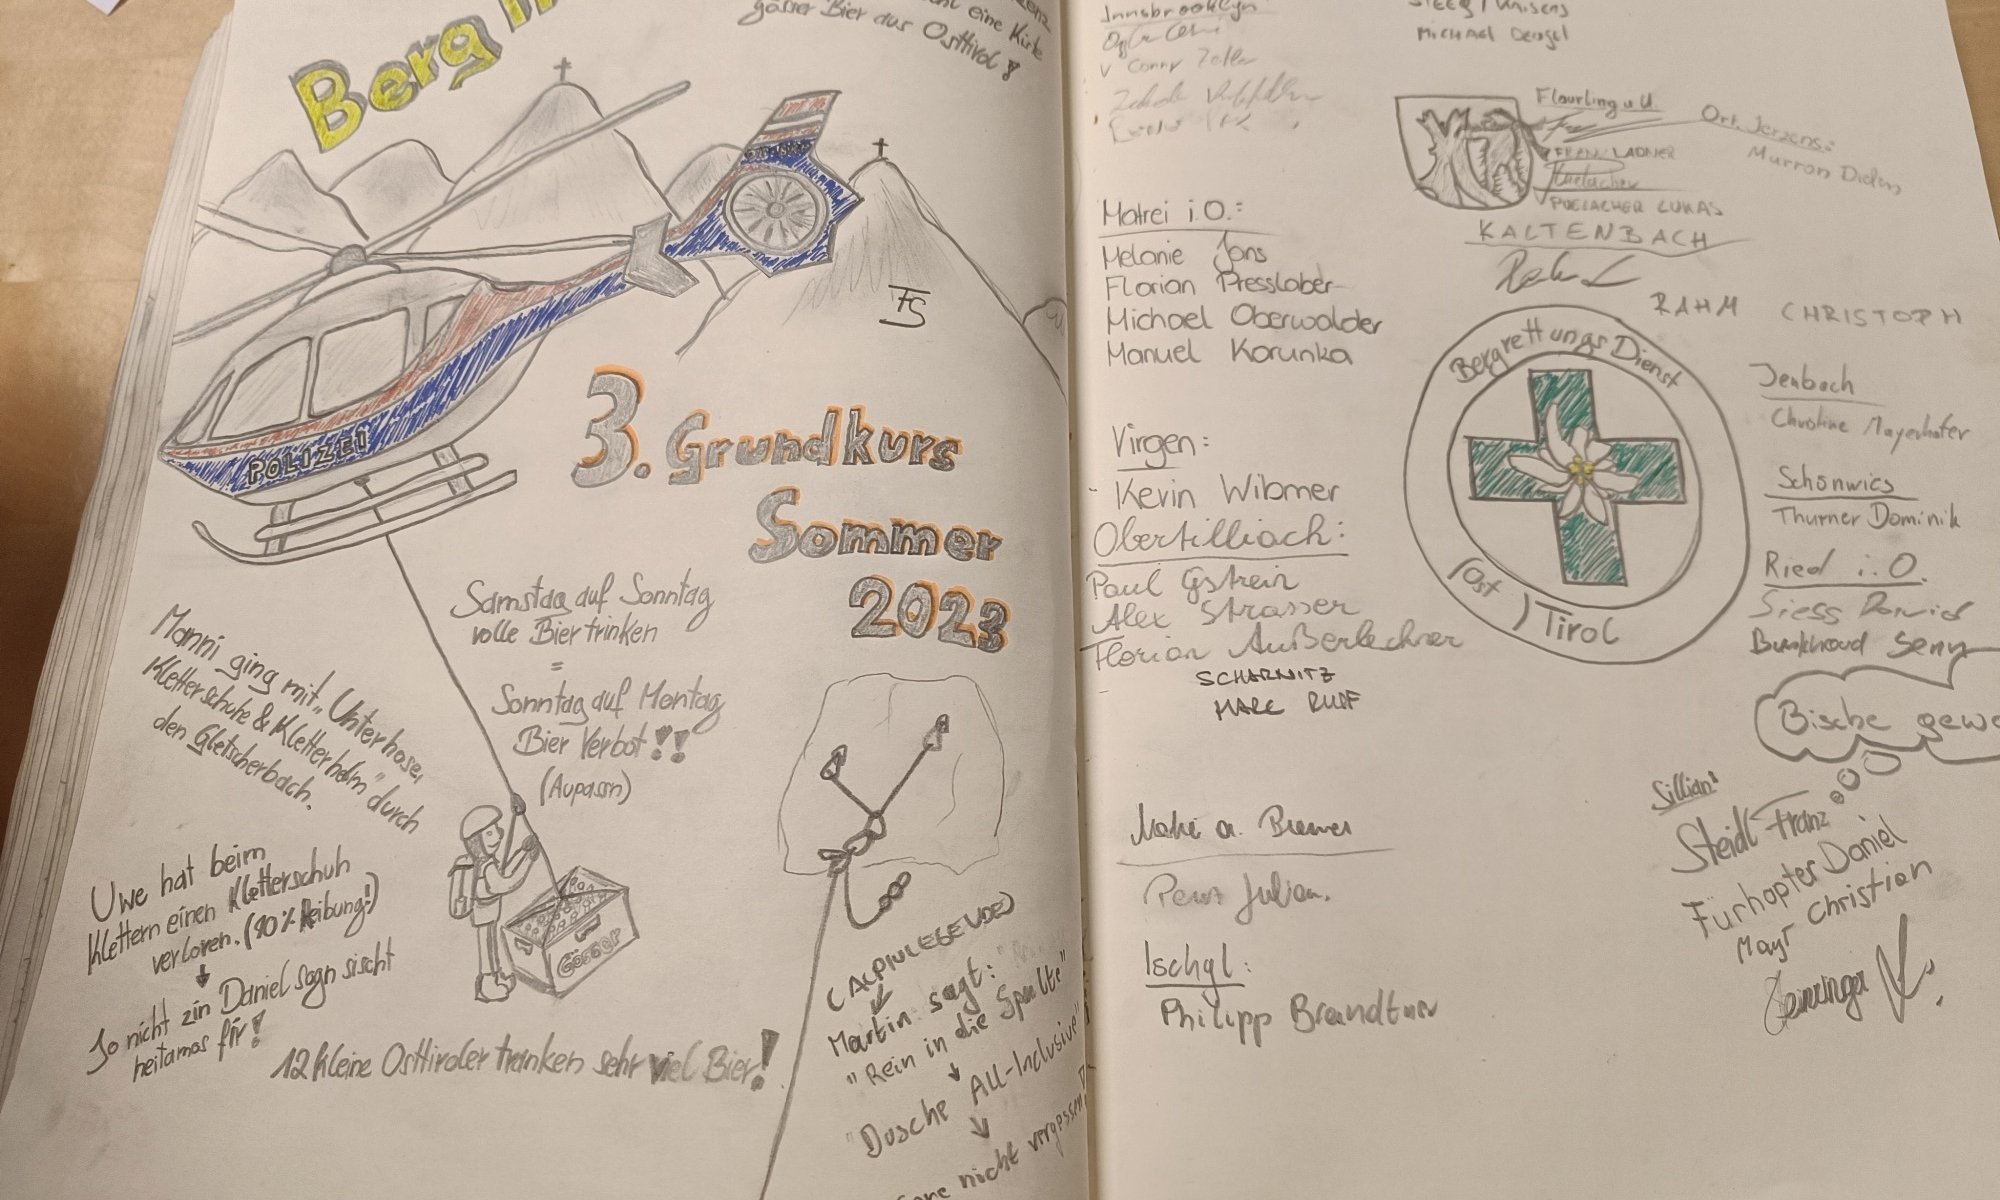 Berg
eine Kiste
gösser Bier aus Osttirol!
POLIZEI
FS
3. Grundkurs
Sommer
2023
Samstag auf Sonntag
volle Bier trinken
=
Sonntag auf Montag
Bier Verbot!!
(Aupassn)
Manni ging mit „Unterhose,
Kletterschuhe & Kletterhelm" durch
den Gletscherbach.
Uwe hat beim
Klettern einen Kletterschuh
verloren. (90% Reibung!)
Jo nicht zin Daniel sogn sischt
heitamas fir!
Gösser
12 kleine Osttiroler tranken sehr viel Bier!
(ALPINLEGENDE)
Martin sagt:
"Rein in die Spalte"
"Dusche All-Inclusive"
nicht vergessen!
Innsbrooklyn
Conny Zoller
MICHAEL Dengel
Flaurling u. U.
LADNER
PUELACHER LUKAS
Ort. Jerzens:
KALTENBACH
RAHM CHRISTOPH
Matrei i.O.:
Melanie Jans
Florian Presslaber
Michael Oberwalder
Manuel Korunka
Virgen:
Kevin Wibmer
Obertilliach:
Paul Gstrein
Alex Strasser
Florian Außerlechner
SCHARNITZ
MARC RUEF
Bergrettungs Dienst
(Ost) Tirol
Jenbach
Christine Mayerhofer
Schönwies
Thurner Dominik
Ried i.O.
Siess
Bische gewe
Matrei a. Brenner
Julian.
Ischgl:
Philipp Brandtner
Sillian:
Steidl Franz
Fürhapter Daniel
Mayr Christian